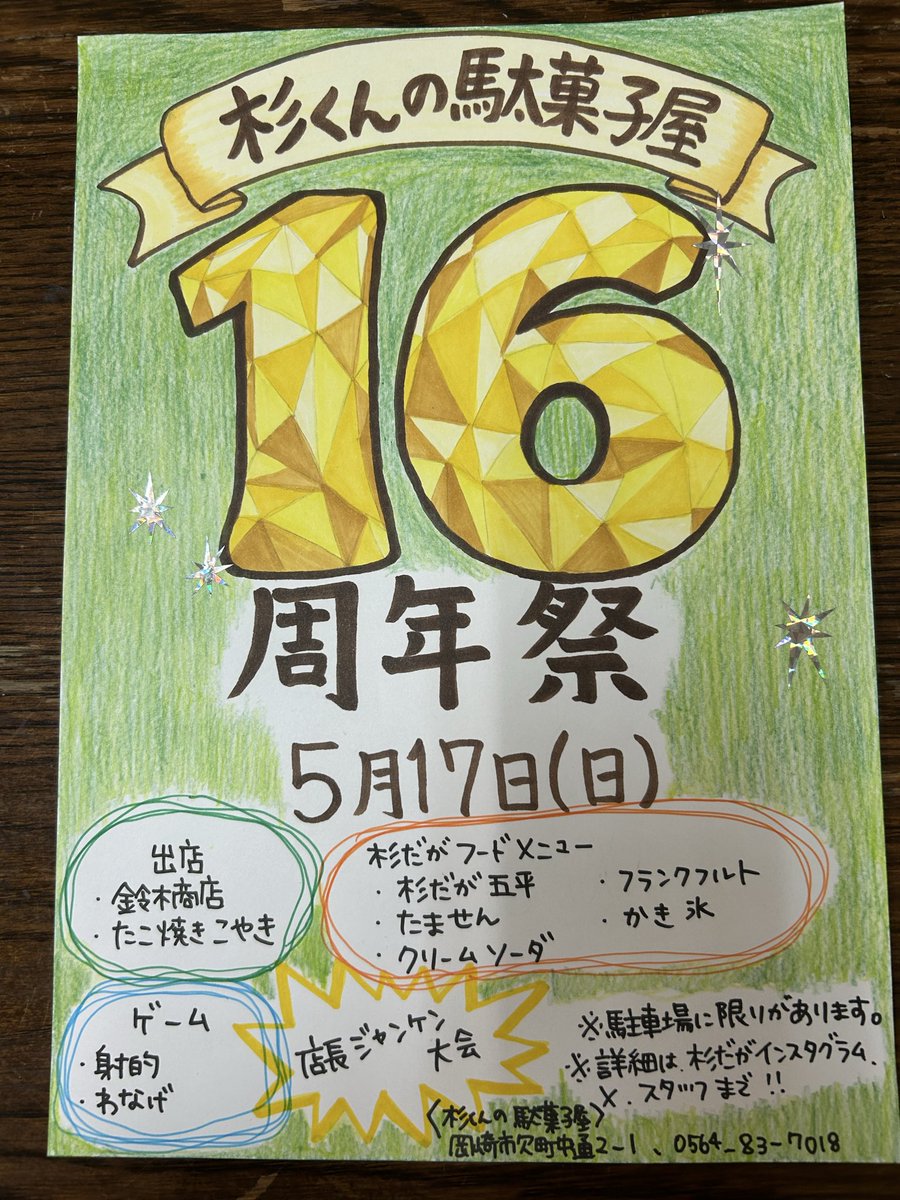 杉くんの駄菓子屋
16
周年祭
5月17日(日)
出店
・鈴木商店
・たこ焼きこやき
杉だがフードメニュー
・杉だが五平
・たません
・クリームソーダ
・フランクフルト
・かき氷
ゲーム
・射的
・わなげ
店長ジャンケン
大会
※駐車場に限りがあります。
※詳細は、杉だがインスタグラム、
X、スタッフまで!!
〈杉くんの駄菓子屋〉
岡崎市欠町中通2-1、0564-83-7018